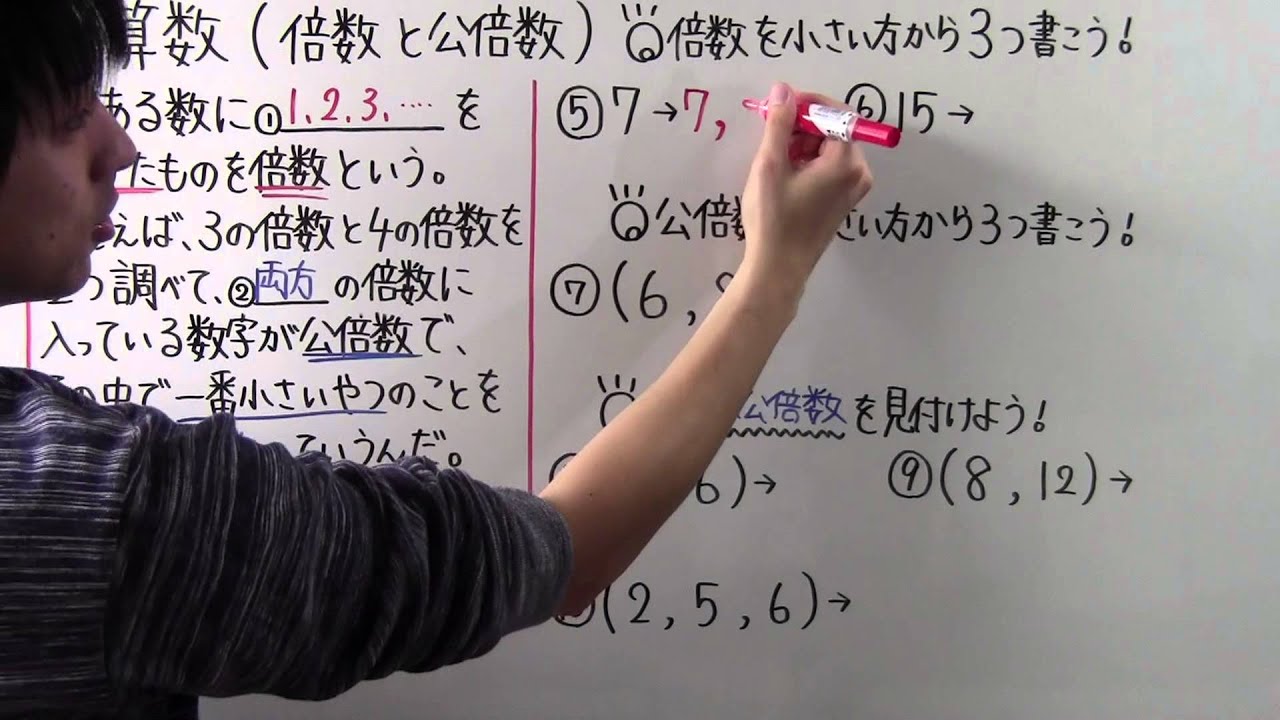 算数（倍数と公倍数）
ある数に①1.2.3.…. を
たものを倍数という。
えば、3の倍数と4の倍数を
つ調べて、②両方の倍数に
入っている数字が公倍数で、
の中で一番小さいやつのことを
ていうんだ。
倍数を小さい方から3つ書こう！
⑤7→7,
⑥15→
公倍 さい方から3つ書こう！
⑦(6,
公倍数を見付けよう！
6)→
⑨(8,12)→
(2,5,6)→